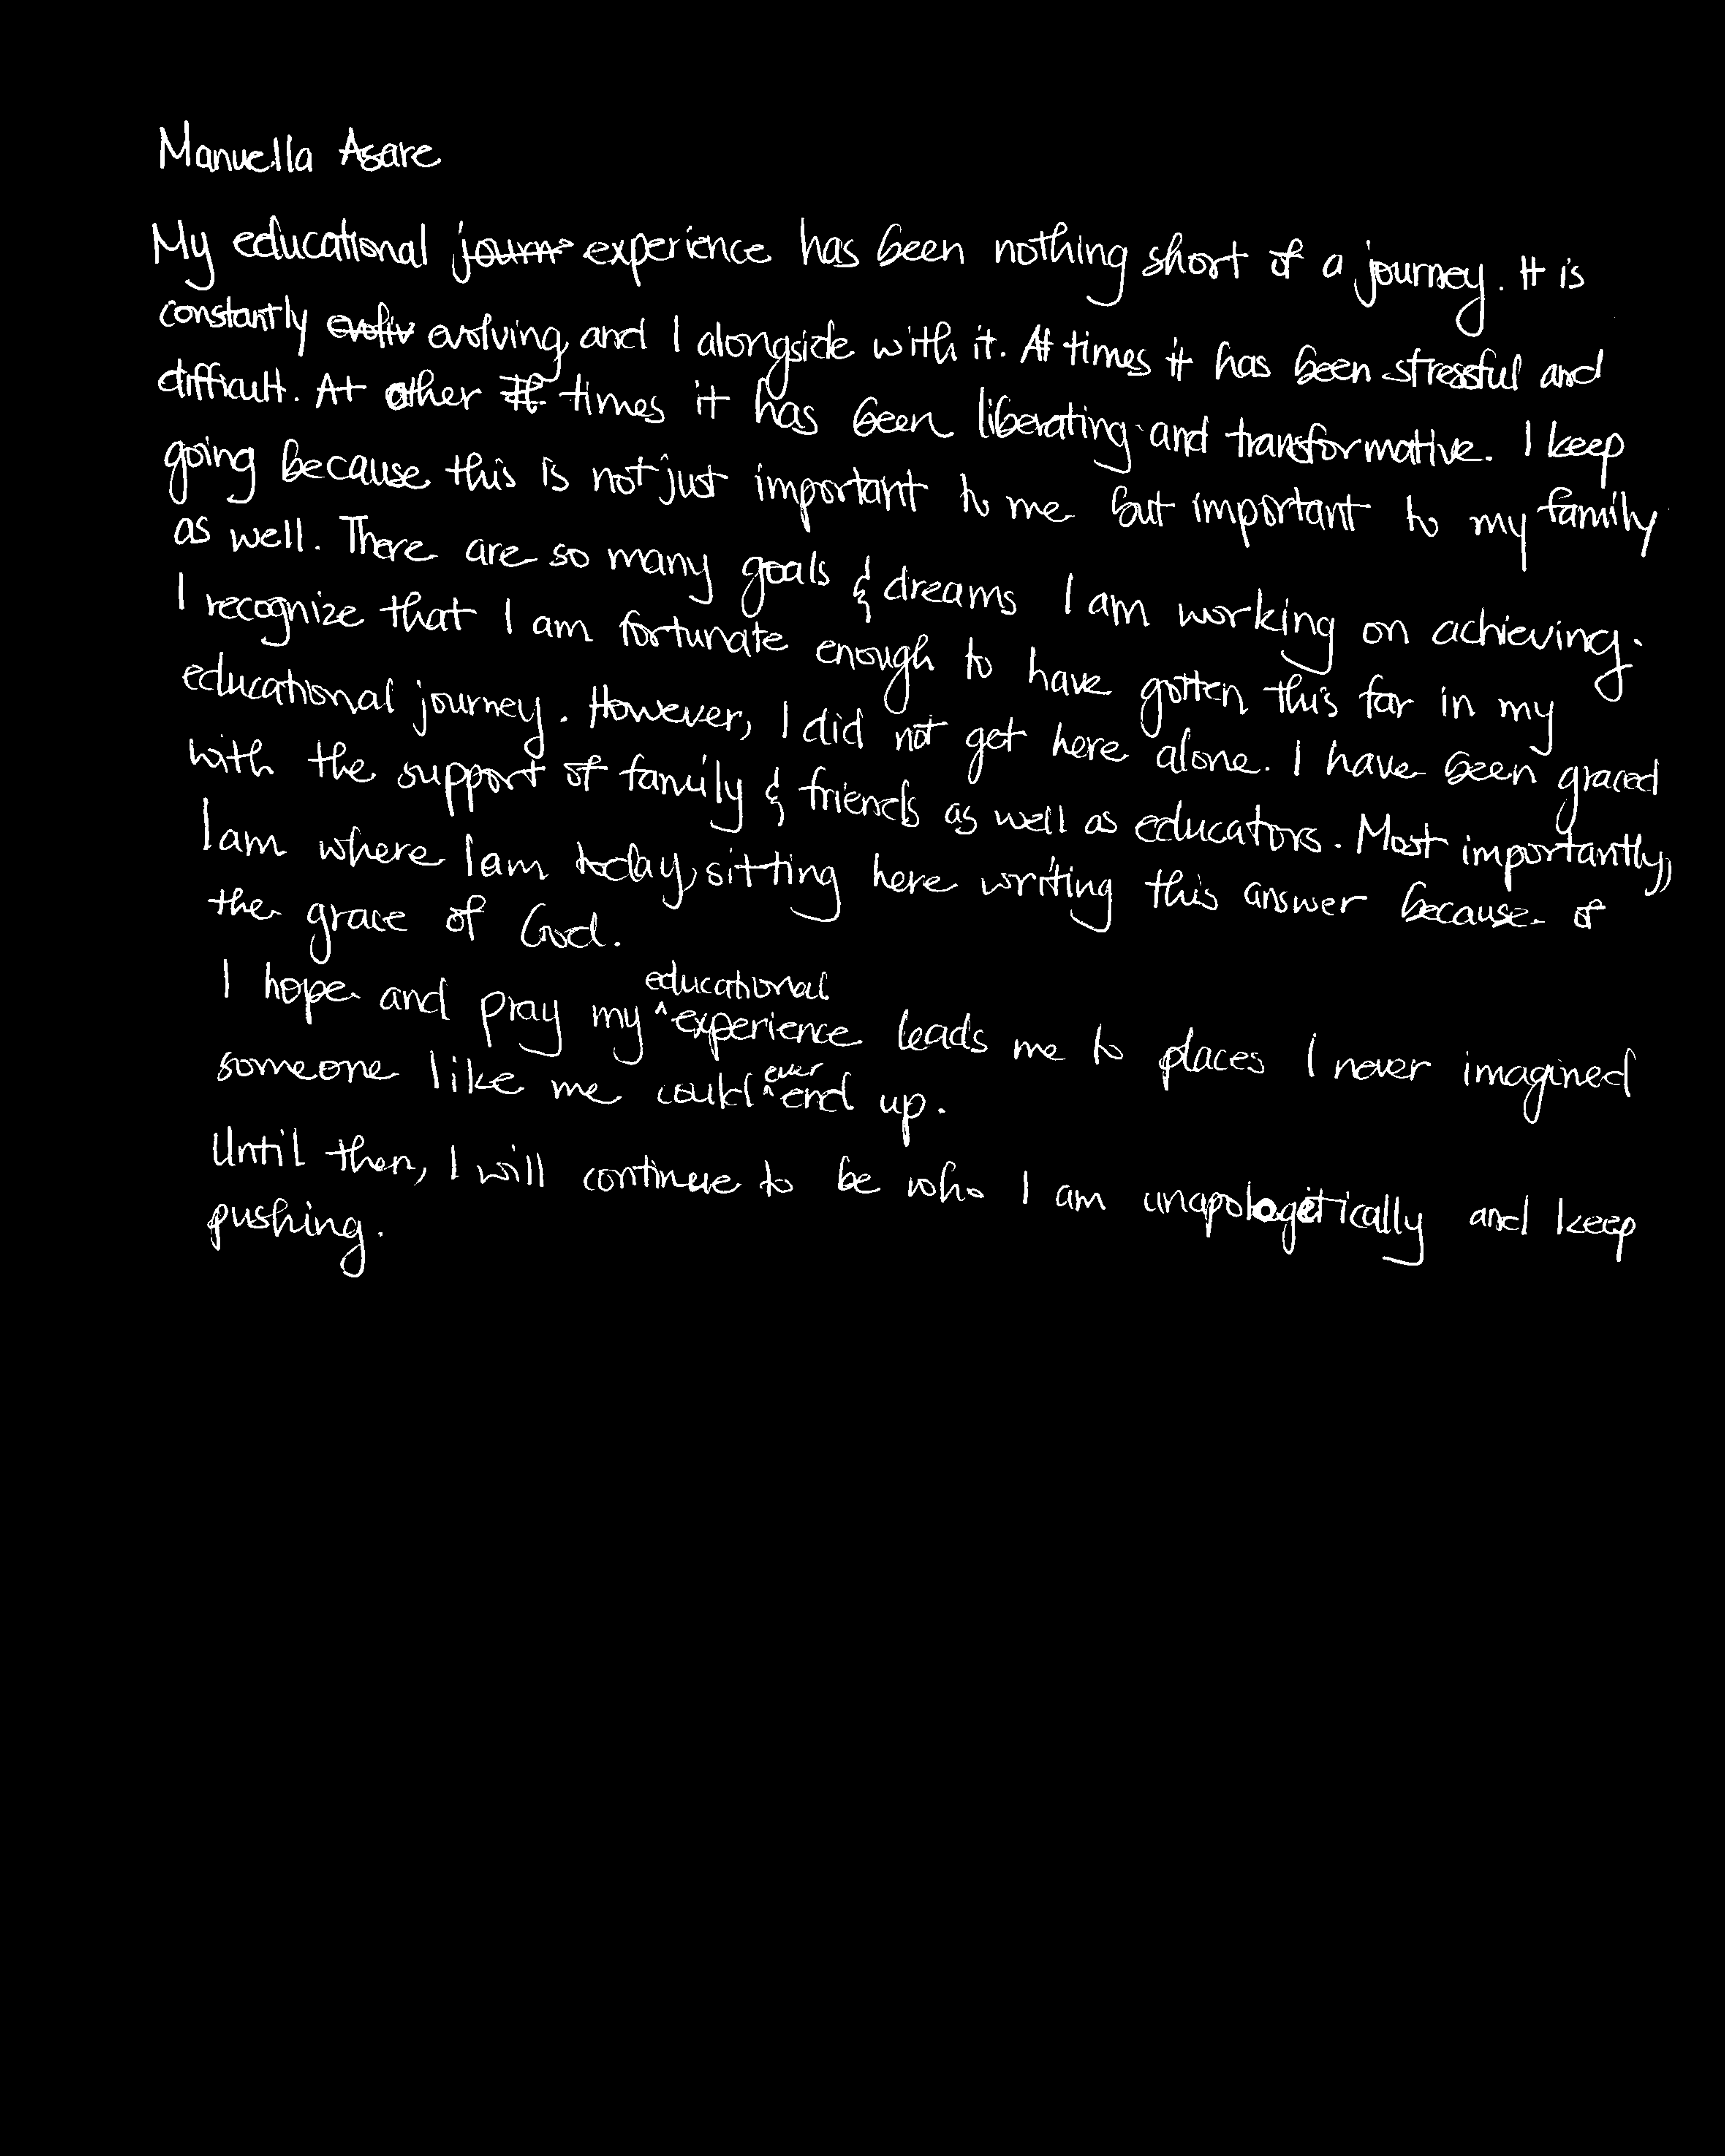 Manuella Asare
My educational journe experience has been nothing short of a journey. It is
constantly evoliv evolving, and I alongside with it. At times it has been stressful and
difficult. At other times it has been liberating and transformative. I keep
going because this is not just important to me but important to my family
as well. There are so many goals & dreams I am working on achieving.
I recognize that I am fortunate enough to have gotten this far in my
educational journey. However, I did not get here alone. I have been graced
with the support of family & friends as well as educators. Most importantly,
I am where I am today, sitting here writing this answer because of
the grace of God.
I hope and pray my ^educational experience leads me to places I never imagined
someone like me could ^ever end up.
Until then, I will continue to be who I am unapologetically and keep
pushing.